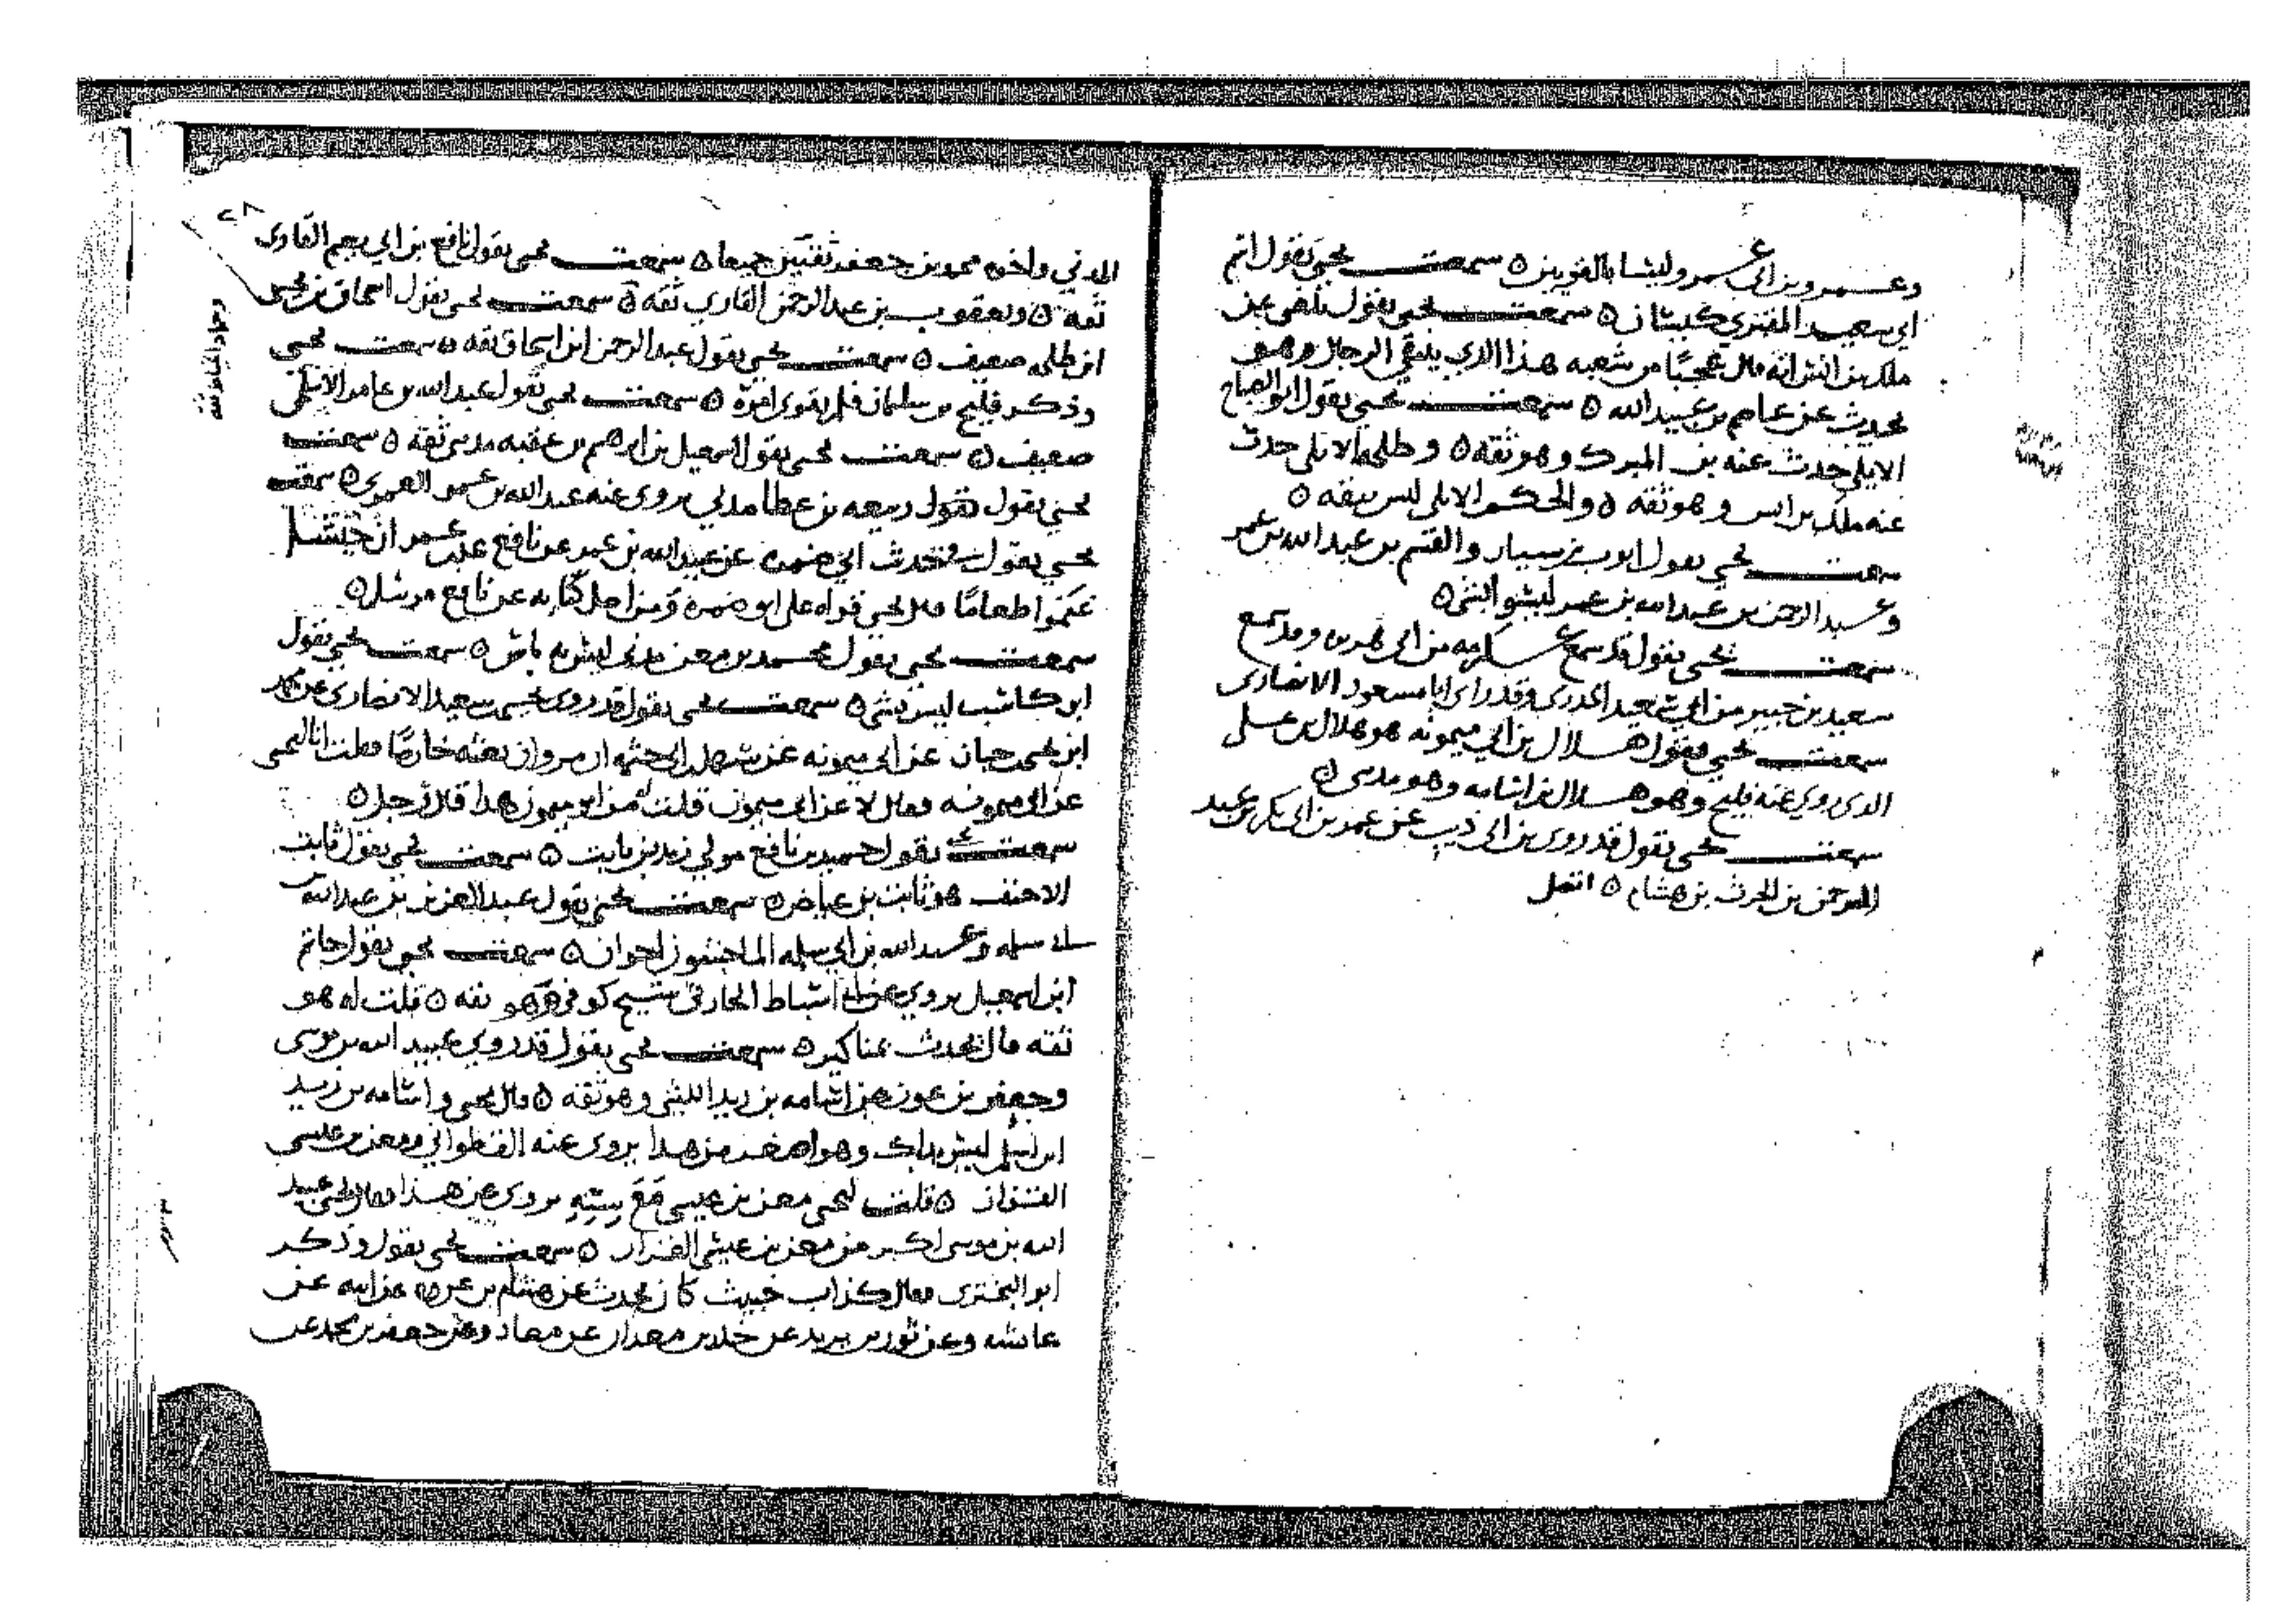 وعمرو بن ابي عمرو وليسا بالقويين ٥ سمعت يحيى يقول اثم
ابي سعيد المقبري كيسان ٥ سمعت يحيى يقول بلغني عن
ملك بن انس انه قال عجبًا من شعبه هذا الذي ينتقي الرجال وهو
يحدث عن عاصم بن عبيد الله ٥ سمعت يحيى يقول ابو الصباح
الايلي حدث عنه بن المبرك وهو ثقه ٥ وطلحه الايلي حدث
عنه ملك بن انس وهو ثقه ٥ والحكم الايلي ليس بثقه ٥
سمعت يحيى يقول ايوب بن سيار والقسم بن عبد الله بن عمر
وعبد الرحمن بن عبد الله بن عمر ليسوا بشي ٥
سمعت يحيى يقول قد سمع عكرمه من ابي هريره وقد سمع
سعيد بن جبير من ابي سعيد الخدري وقد راى ابا مسعود الانصاري
سمعت يحيى يقول هلال بن ابي ميمونه هو هلال بن علي
الذي روى عنه فليح وهو هلال بن اسامه وهو مديني ٥
سمعت يحيى يقول قد روى بن ابي ذيب عن عمر بن ابي بكر بن عبد
الرحمن بن الحرث بن هشام ٥ اتصل
٢٨
المدني واخوه محمد بن جعفر ثقتين جميعا ٥ سمعت يحيى يقول نافع بن ابي نعيم القاري
ثقه ٥ ويعقوب بن عبد الرحمن القاري ثقه ٥ سمعت يحيى يقول اسحاق بن يحيى
ابن طلحه ضعيف ٥ سمعت يحيى يقول عبد الرحمن ابن اسحاق ثقه ٥ سمعت يحيى
وذكر فليح بن سليمان فلم يقوي امره ٥ سمعت يحيى يقول عبد الله بن عامر الاسلمي
ضعيف ٥ سمعت يحيى يقول اسمعيل بن ابرهيم بن عقبه مديني ثقه ٥ سمعت
يحيى يقول ربيعه بن عطا مدني يروي عنه عبد الله بن عمر العمري ٥ سمعت
يحيى يقول في حديث ابي ضمره عن عبيد الله بن عمر عن نافع عن بن عمر ان جيشًا
غنموا طعامًا قال يحيى قراه على ابو ضمره من اصل كتابه عن نافع مرسل ٥
سمعت يحيى يقول محمد بن معن مدني ليس به باس ٥ سمعت يحيى يقول
ابن كاسب ليس بشي ٥ سمعت يحيى يقول قد روى يحيى بن سعيد الانصاري عن محمد
ابن يحيى بن حبان عن ابي ميمونه عن سهل بن ابي حثمه ان مروان بعثه خارصًا فقلت انا ليحيى
عن ابي ميمونه فقال لا عن ابي ميمون قلت من ابو ميمون هذا قال رجل ٥
سمعت يحيى يقول حميد بن نافع مولى زيد بن ثابت ٥ سمعت يحيى يقول ثابت
الاحنف هو ثابت بن عياض ٥ سمعت يحيى يقول عبد العزيز بن عبد الله بن
ابي سلمه وعبد الله بن ابي سلمه الماجشون اخوان ٥ سمعت يحيى يقول حاتم
ابن اسمعيل يروي عن اسباط الحارثي شيخ كوفي وهو ثقه ٥ قلت له هو
ثقه قال يحدث بمناكير ٥ سمعت يحيى يقول قد روى عبيد الله بن موسى
وجعفر بن عون عن اسامه بن زيد الليثي وهو ثقه ٥ قال يحيى واسامه بن زيد
ابن اسلم ليس بذاك وهو اصغر من هذا يروي عنه القطواني ومعن بن عيسى
القزاز ٥ قلت ليحيى معن بن عيسى مع سنه يروي عن هذا فقال يحيى عبيد
الله بن موسى اكبر من معن بن عيسى القزاز ٥ سمعت يحيى يقول وذكر
ابو البختري فقال كذاب خبيث كان يحدث عن هشام بن عروه عن ابيه عن
عايشه وعن ثور بن يزيد عن خلد بن معدان عن معاذ وعن جعفر بن محمد عن
وحماد الخياط ثقه